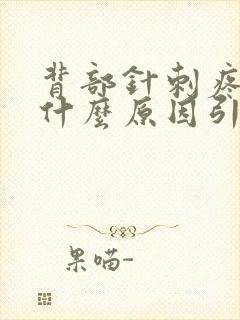 背部針刺疼
什麼原因引
果喵-